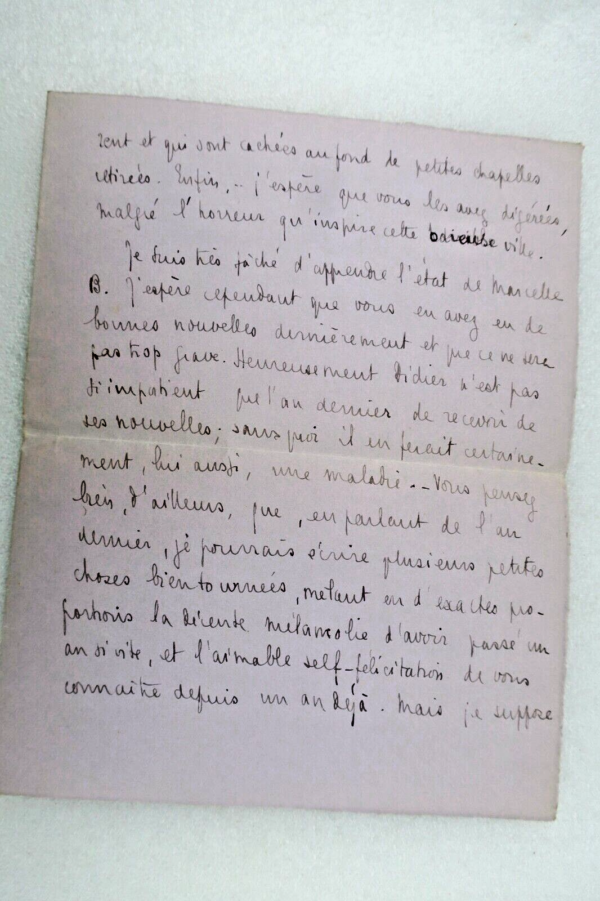 rent et qui sont cachées au fond de petites chapelles
retirées. Enfin, .. j'espère que vous les avez digérées,
malgré l'horreur qu'inspire cette ville.
Je suis très fâché d'apprendre l'état de Marcelle
B. J'espère cependant que vous en avez eu de
bonnes nouvelles dernièrement et que ce ne sera
pas trop grave. Heureusement Didier n'est pas
si impatient que l'an dernier de recevoir de
ses nouvelles; sans quoi il en ferait certaine-
ment, lui aussi, une maladie. -- Vous pensez
bien, d'ailleurs, que, en parlant de l'an
dernier, je pourrais écrire plusieurs petites
choses bien tournées, mêlant en d'exactes pro-
portions la décente mélancolie d'avoir passé un
an si vite, et l'aimable self-félicitation de vous
connaître depuis un an déjà. Mais je suppose